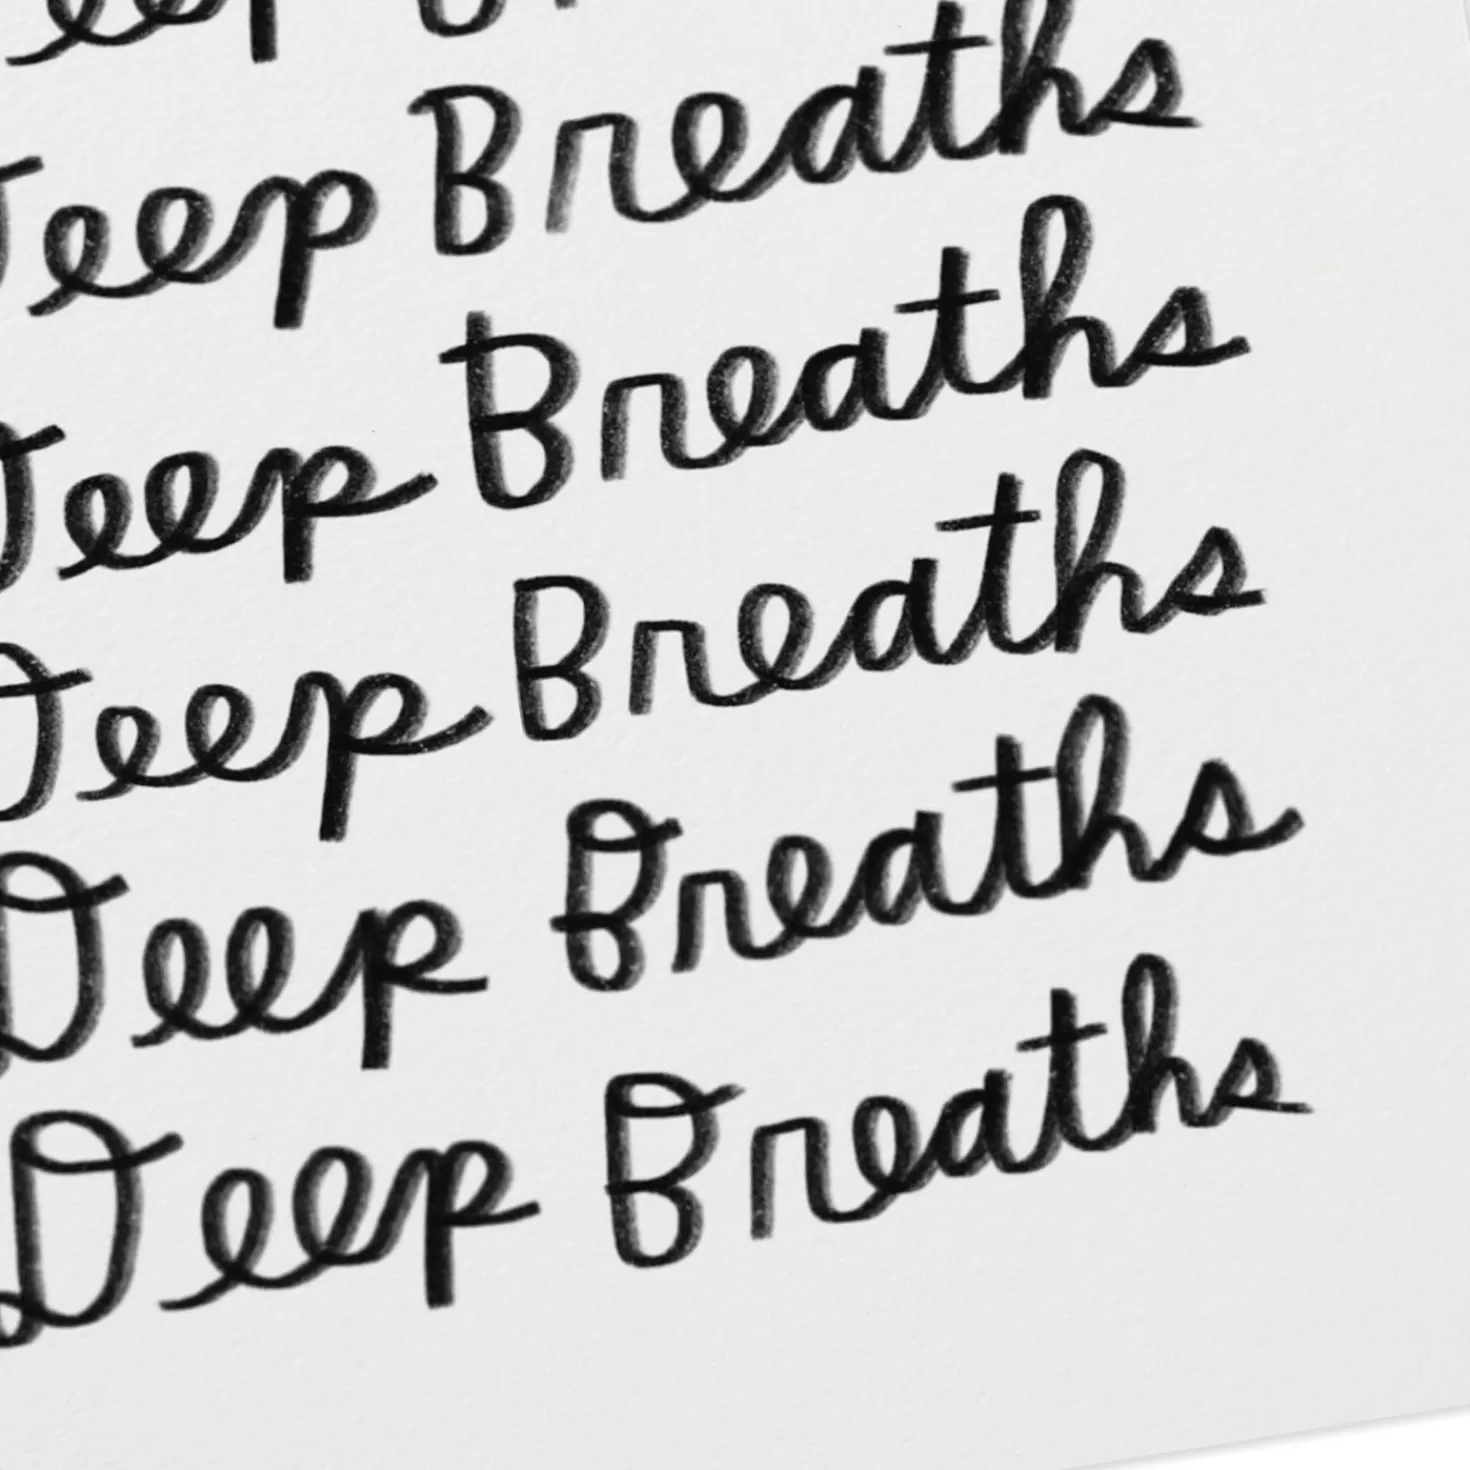 eep
Deep Breaths
Deep Breaths
Deep Breaths
Deep Breaths
Deep Breaths